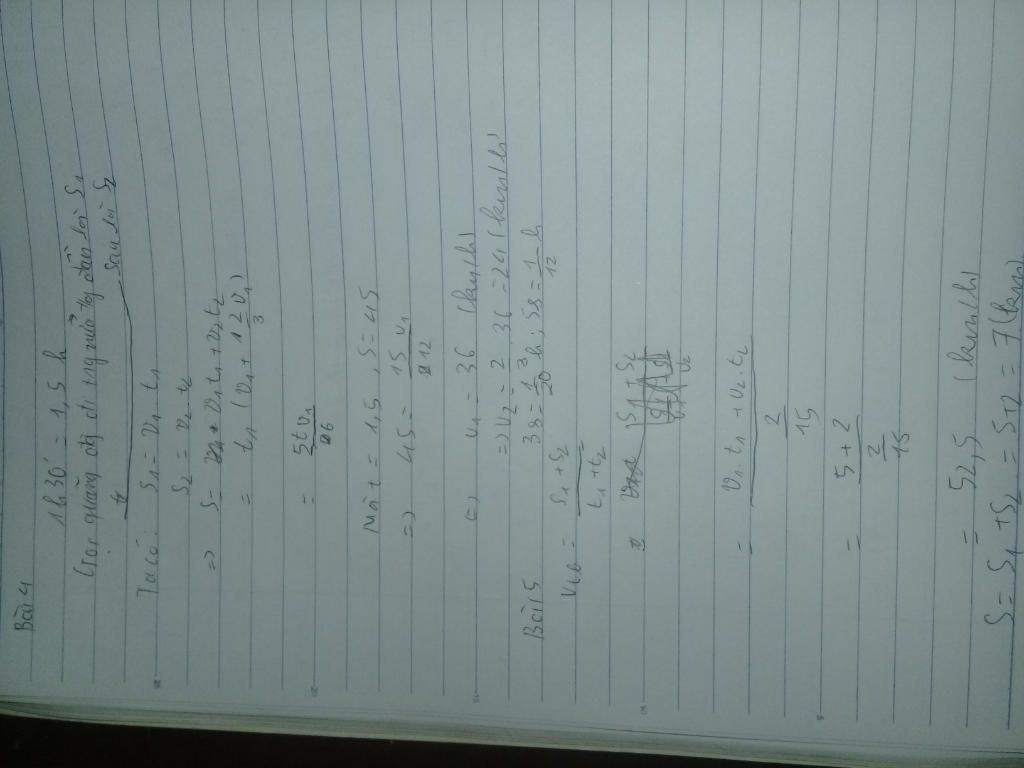 Bài 4
1h30' = 1,5 h
Gọi quãng đg đi trg nửa tg đầu là S1
sau là S2
Ta có: S1 = v1 t1
S2 = v2 t2
=> S = v1t1 + v2t2
= t1 (v1 + 2/3 v1)
= 5tv1/6
Mà t = 1,5, S = 45
=> 45 = 15 v1/12
=> v1 = 36 (km/h)
=> v2 = 2/3 . 36 = 24 (km/h)
Bài 5
3s = 1/20 h; 5s = 1/12 h
Vtb = S1 + S2 / t1 + t2
= v1. t1 + v2. t2 / 2/15
= 5 + 2 / 2/15
= 52,5 (km/h)
S = S1 + S2 = 5 + 2 = 7 (km)